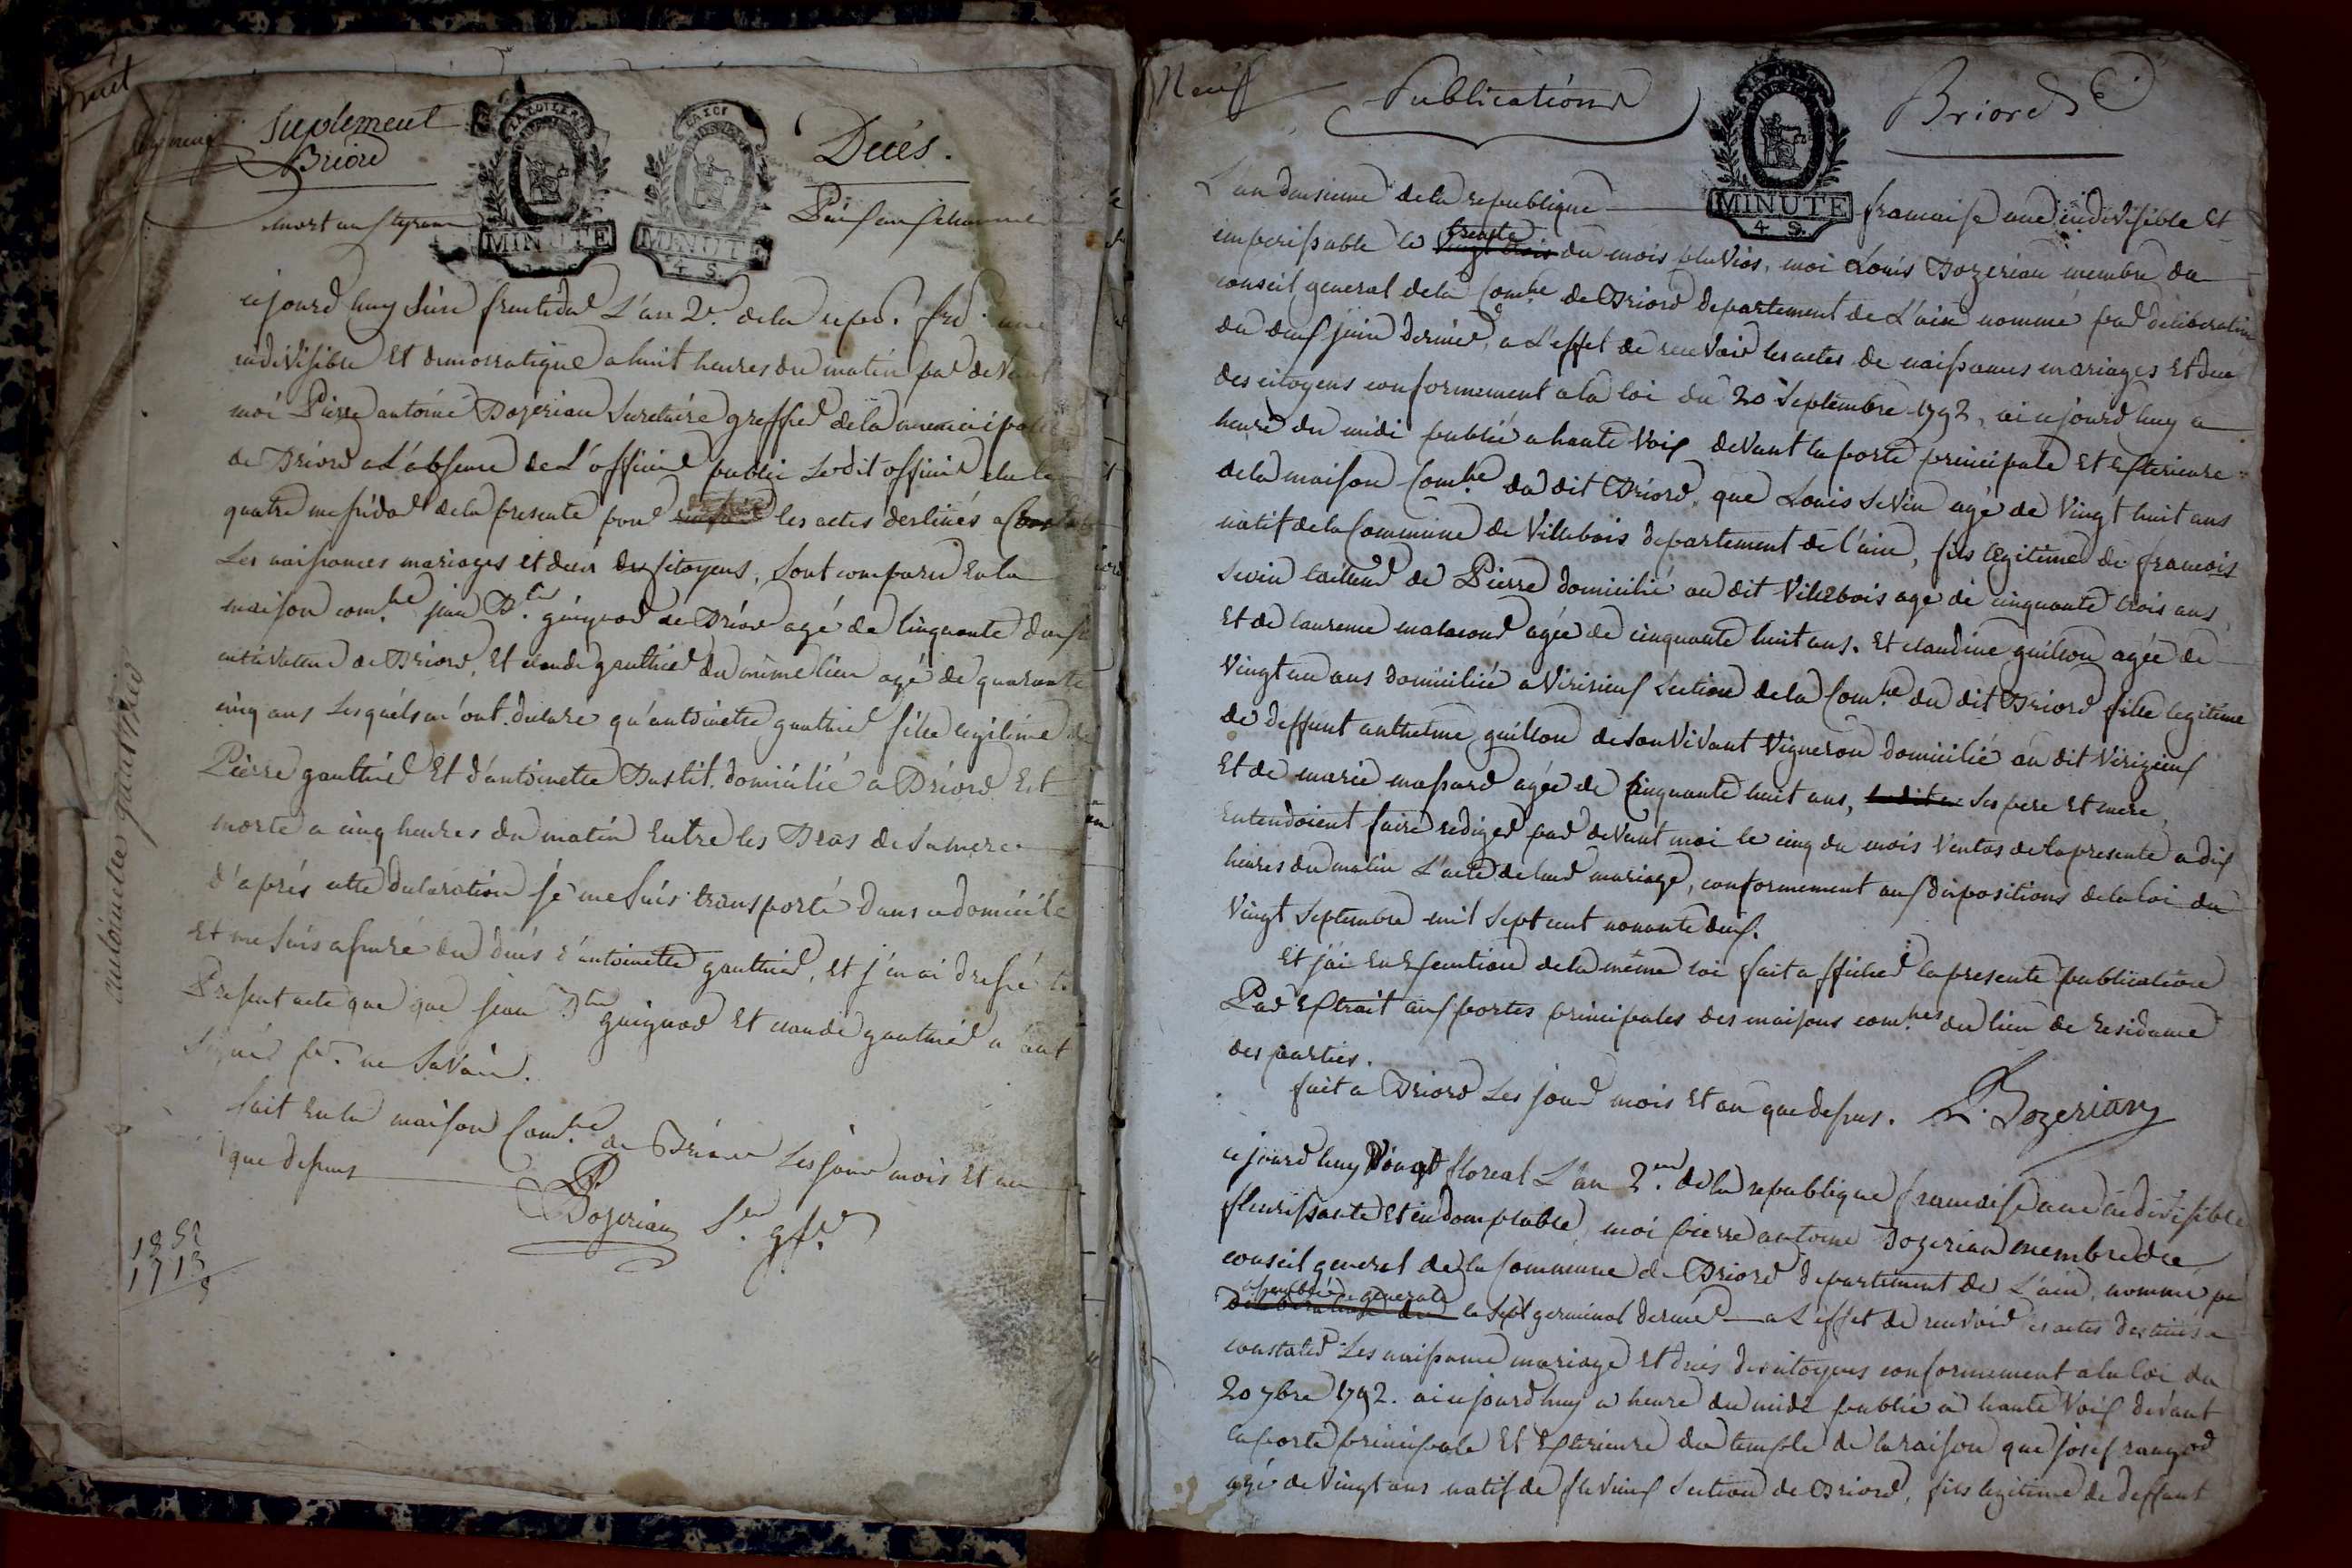 huit
Suplement
Briord
Decés.
mort aux tyrans
Paix aux chaumieres
LA LOI
MINUTE
4 S.
MINUTE
4 S.
cejourd huy seize fructidor L'an 2e. de la repub. fre. une
indivisible Et democratique a huit heures du matin par devant
moi Pierre antoine Bozerian Secretaire greffier de la municipalité
de Briord a L'absence de L'officier public Ledit officier elu le
quatre messidor de la presente pour les actes destinés a Constater
Les naissances mariages et deces des Citoyens, sont comparus En la
maison comne. jean Bte. guignod de Briord agé de Cinquante deux
cultivateur de Briord, Et claude gauthier du même lieu agé de quarante
cinq ans Lesquels m'ont declaré qu'antoinette gauthier fille legitime de
Pierre gauthier Et d'antoinette Bustit domicilié a Briord Est
morte a cinq heures du matin Entre les Bras de sa mere
d'aprés cette declaration je me suis transporté dans ce domicile
Et me suis assuré du deces d'antoinette gauthier, Et j'en ai dressé le
Present acte que que jean Bte guignod Et claude gauthier n'ont
signé pr. ne savoir.
fait En la maison Comne. de Briord Les jour mois Et an
que dessus
P. Bozerian Sre. gfr.
antoinette gauthier
1792
1713
Neuf
Publications
Briord
MINUTE
4 S.
L'an deuxieme de la republique francaise une indivisible Et
imperissable le vingt trois trente du mois pluvios, moi Louis Bozerian membre du
conseil general de la Comne de Briord departement de L'ain nommé par deliberation
du deux juin dernier, a L'effet de recevoir les actes de naissances mariages Et deces
des citoyens conformement a la loi du 20 Septembre 1792, ai cejourd huy a
heure du midi publié a haute Voix devant la porte principale Et Exterieure
de la maison Comne du dit Briord, que Louis Sevin agé de Vingt huit ans
natif de la Commune de Villebois departement de l'ain, fils legitime de francois
Sevin tailleur de Pierre domicilié au dit Villebois agé de cinquante trois ans
Et de laurence agée de cinquante huit ans. Et claudine guillon agée de
Vingt un ans domiciliée a Virisieux Section de la Comne. du dit Briord fille legitime
de deffunt anthelme guillon de son Vivant Vigneron domicilié au dit Virizieux
Et de marie massard agée de Cinquante huit ans, ses pere Et mere,
Entendoient faire rediger par devant moi le cinq du mois Ventos de la presente a dix
heures du matin L'acte de leur mariage, conformement aux dispositions de la loi du
Vingt Septembre mil Sept cent nonante deux.
Et j'ai En Execution de la même loi fait afficher la presente publication
Par Extrait aux portes principales des maisons comnes du lieu de Residance
des parties.
fait a Briord Les jour mois Et an que dessus. L. Bozerian
cejourd huy Vingt floreal L'an 2eme. de la republique francaise une indivisible
fleurissante Et indomptable, moi pierre antoine Bozerian membre du
conseil general de la Commune de Briord departement de L'ain, nommé par
assemblée generale
le Sept germinal dernier a L'effet de recevoir les actes destinés a
constater Les naissance mariage Et deces des citoyens conformement a la loi du
20 7bre 1792. ai cejourd huy a heure du midi publié a haute Voix devant
la porte principale Et Exterieure du temple de la raison que josef
agé de Vingt ans natif de flevieux Section de Briord, fils legitime de deffunt